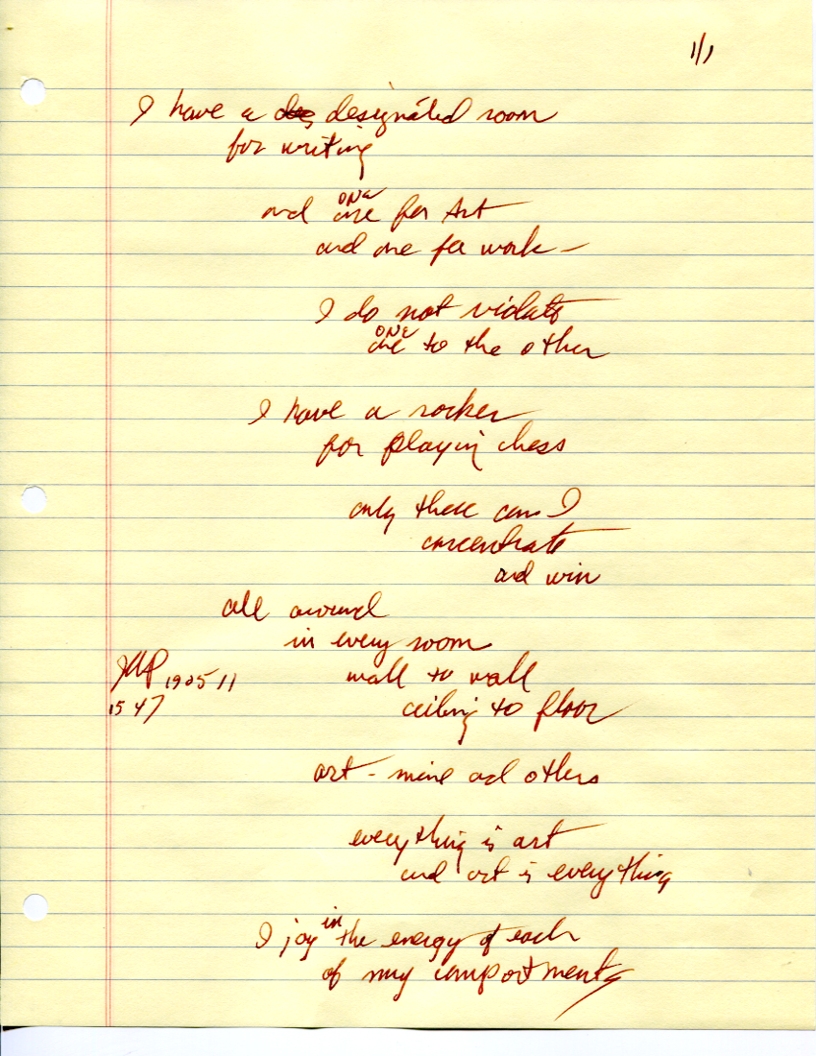 1/1
I have a des designated room
for writing
ONE
and one for Art
and one for work —
I do not violate
ONE
one to the other
I have a rocker
for playing chess
only there can I
concentrate
and win
all around
in every room
wall to wall
190511
1547
ceiling to floor
art - mine and others
everything is art
and art is everything
in
I joy the energy of each
of my compartments